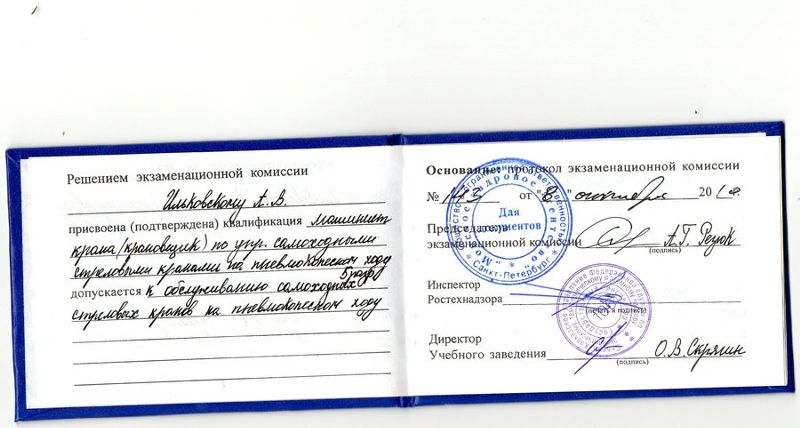 Решением экзаменационной комиссии
Ильковскому А. В.
присвоена (подтверждена) квалификация машинист
крана (крановщик) по упр. самоходными
стреловыми кранами на пневмоколесном ходу
5 разр
допускается к обслуживанию самоходных
стреловых кранов на пневмоколесном ходу
Основание: протокол экзаменационной комиссии
№ 143 от "8" октября 201
Председатель
экзаменационной комиссии А.Г. Резюк
(подпись)
Для
документов
Санкт-Петербург
Инспектор
Ростехнадзора
(печать и подпись)
Директор
Учебного заведения О.В. Скрягин
(подпись)